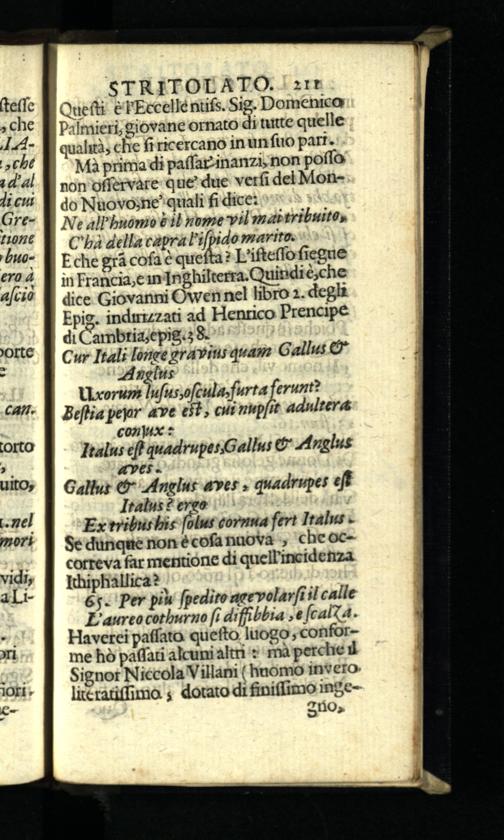 STRITOLATO. 211
Questi è l'Eccellentiss. Sig. Domenico
Palmieri, giovane ornato di tutte quelle
qualità, che si ricercano in un suo pari.
Mà prima di passar inanzi, non posso
non osservare que' due versi del Mon-
do Nuovo, ne' quali si dice:
Ne all'huomo è il nome vil mai tribuito,
C'hà della capra l'ispido marito.
E che grã cosa è questa? L'istesso siegue
in Francia, e in Inghilterra. Quindi è, che
dice Giovanni Owen nel libro 2. degli
Epig. indirizzati ad Henrico Prencipe
di Cambria, epig. 38.
Cur Itali longe gravius quam Gallus &
Anglus
Uxorum lusus, oscula, furta ferunt?
Bestia peyor ave est, cui nupsit adultera
conyux:
Italus est quadrupes, Gallus & Anglus
aves.
Gallus & Anglus aves, quadrupes est
Italus? ergo
Ex tribus his solus cornua fert Italus.
Se dunque non è cosa nuova, che oc-
correva far mentione di quell'incidenza
Ithiphallica?
65. Per più spedito agevolarsi il calle
L'aureo cothurno si diffibbia, e scalza.
Haverei passato questo luogo, confor-
me hò passati alcuni altri: mà perche il
Signor Niccola Villani (huomo invero
literatissimo, dotato di finissimo inge-
gno,
stesse
, che
LIA-
, che
a d'al
di cui
Gre-
itione
buo-
ero à
lasciò
porte
e
can.
torto
uito,
. nel
mori
vidi,
a Li-
ori
iori.
e-